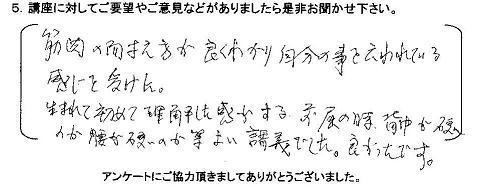 5. 講座に対してご要望やご意見などがありましたら是非お聞かせ下さい。
筋肉の 方が良くわかり自分の事を云われている
感じを受けた。
生まれて初めて理解した感がする 前屈の時、背中が硬い
のか腰が硬いのか等よい講義でした。良かったです。
アンケートにご協力頂きましてありがとうございました。